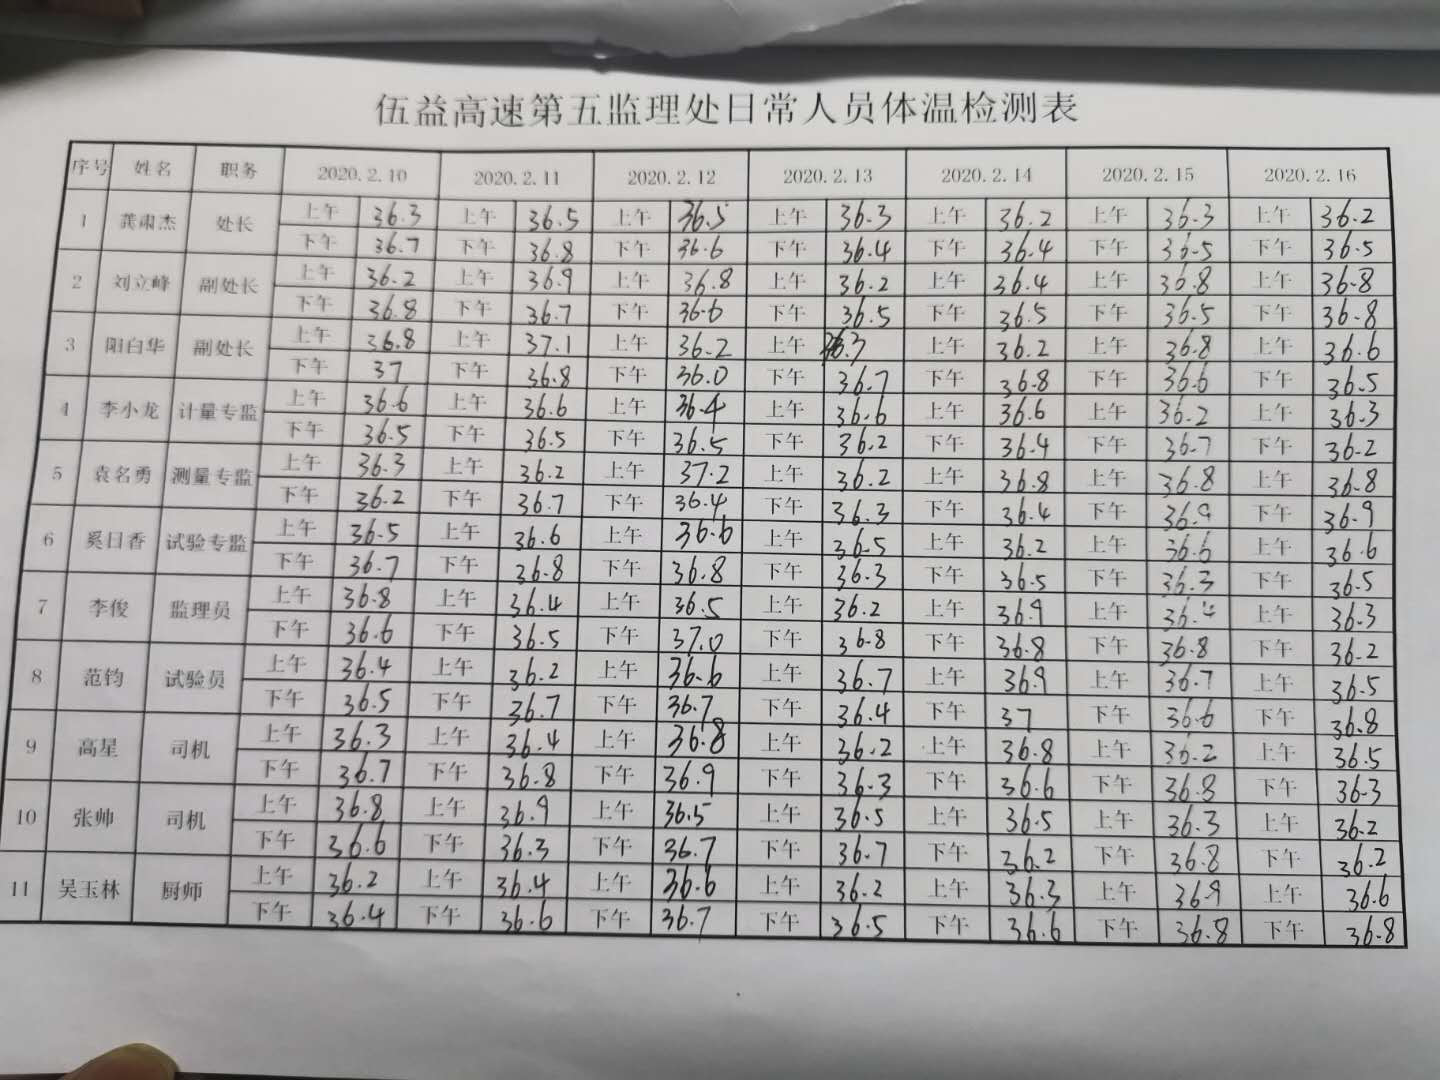 伍益高速第五监理处日常人员体温检测表
序号 姓名 职务 2020.2.10 2020.2.11 2020.2.12 2020.2.13 2020.2.14 2020.2.15 2020.2.16
1 龚肃杰 处长 上午 36.3 上午 36.5 上午 36.5 上午 36.3 上午 36.2 上午 36.3 上午 36.2
下午 36.7 下午 36.8 下午 36.6 下午 36.4 下午 36.4 下午 36.5 下午 36.5
2 刘立峰 副处长 上午 36.2 上午 36.9 上午 36.8 上午 36.2 上午 36.4 上午 36.8 上午 36.8
下午 36.8 下午 36.7 下午 36.6 下午 36.5 下午 36.5 下午 36.5 下午 36.8
3 阳白华 副处长 上午 36.8 上午 37.1 上午 36.2 上午 36.3 上午 36.2 上午 36.8 上午 36.6
下午 37 下午 36.8 下午 36.0 下午 36.7 下午 36.8 下午 36.6 下午 36.5
4 李小龙 计量专监 上午 36.6 上午 36.6 上午 36.4 上午 36.6 上午 36.6 上午 36.2 上午 36.3
下午 36.5 下午 36.5 下午 36.5 下午 36.2 下午 36.4 下午 36.7 下午 36.2
5 袁名勇 测量专监 上午 36.3 上午 36.2 上午 37.2 上午 36.2 上午 36.8 上午 36.8 上午 36.8
下午 36.2 下午 36.7 下午 36.4 下午 36.3 下午 36.4 下午 36.9 下午 36.9
6 奚日香 试验专监 上午 36.5 上午 36.6 上午 36.6 上午 36.5 上午 36.2 上午 36.6 上午 36.6
下午 36.7 下午 36.8 下午 36.8 下午 36.3 下午 36.5 下午 36.3 下午 36.5
7 李俊 监理员 上午 36.8 上午 36.4 上午 36.5 上午 36.2 上午 36.9 上午 36.4 上午 36.3
下午 36.6 下午 36.5 下午 37.0 下午 36.8 下午 36.8 下午 36.8 下午 36.2
8 范钧 试验员 上午 36.4 上午 36.2 上午 36.6 上午 36.7 上午 36.9 上午 36.7 上午 36.5
下午 36.5 下午 36.7 下午 36.7 下午 36.4 下午 37 下午 36.6 下午 36.8
9 高星 司机 上午 36.3 上午 36.4 上午 36.8 上午 36.2 上午 36.8 上午 36.2 上午 36.5
下午 36.7 下午 36.8 下午 36.9 下午 36.3 下午 36.6 下午 36.8 下午 36.3
10 张帅 司机 上午 36.8 上午 36.9 上午 36.5 上午 36.5 上午 36.5 上午 36.3 上午 36.2
下午 36.6 下午 36.3 下午 36.7 下午 36.7 下午 36.2 下午 36.8 下午 36.2
11 吴玉林 厨师 上午 36.2 上午 36.4 上午 36.6 上午 36.2 上午 36.3 上午 36.9 上午 36.6
下午 36.4 下午 36.6 下午 36.7 下午 36.5 下午 36.6 下午 36.8 下午 36.8